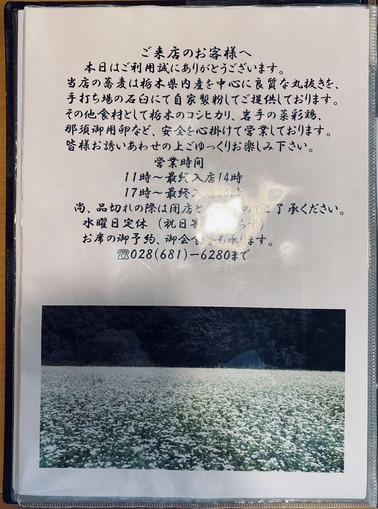 ご来店のお客様へ
本日はご利用誠にありがとうございます。
当店の蕎麦は栃木県内産を中心に良質な丸抜きを、
手打ち場の石臼にて自家製粉してご提供しております。
その他食材として栃木のコシヒカリ、岩手の菜彩鶏、
那須御用卵など、安全を心掛けて営業しております。
皆様お誘いあわせの上ごゆっくりお楽しみ下さい。
営業時間
11時～最終入店14時
17時～最終
尚、品切れの際は閉店と のでご了承ください。
水曜日定休（祝日
お席の御予約、御会 も承ります。
☏028(681)−6280まで